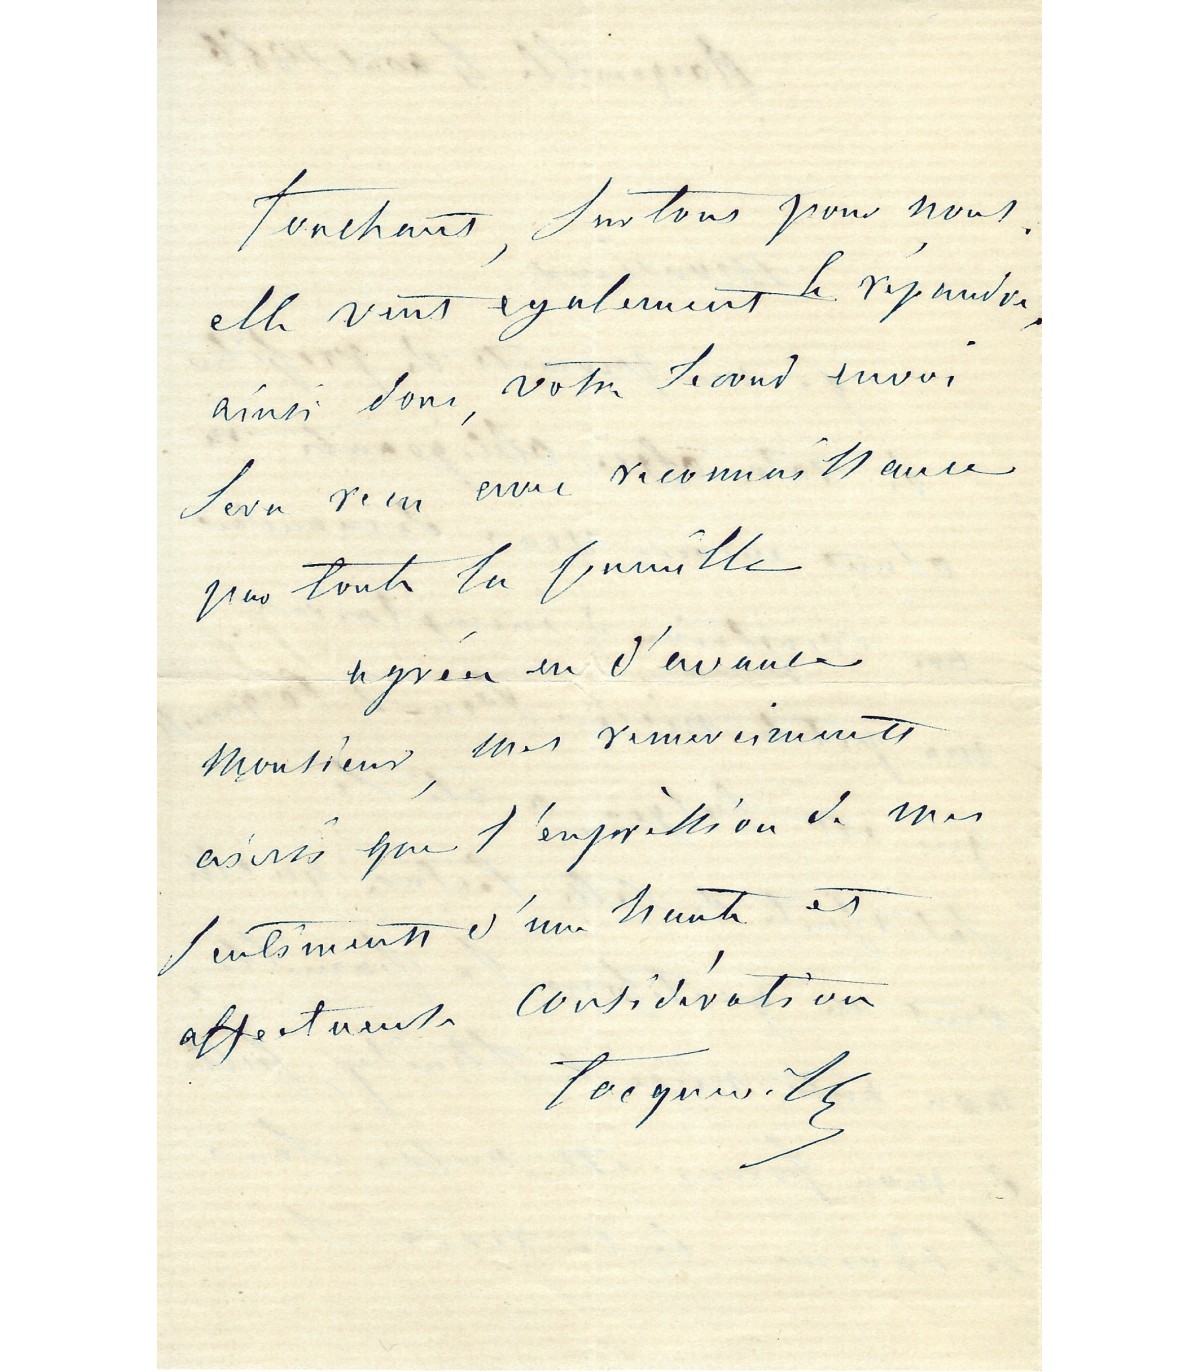 touchant, surtout pour nous.
elle veut également le répandre,
ainsi donc, votre second envoi
sera reçu avec reconnaissance
par toute la famille
agréez en d'avance
Monsieur, mes remerciments
ainsi que l'expression de mes
sentiments d'une haute et
affectueuse considération
Tocqueville